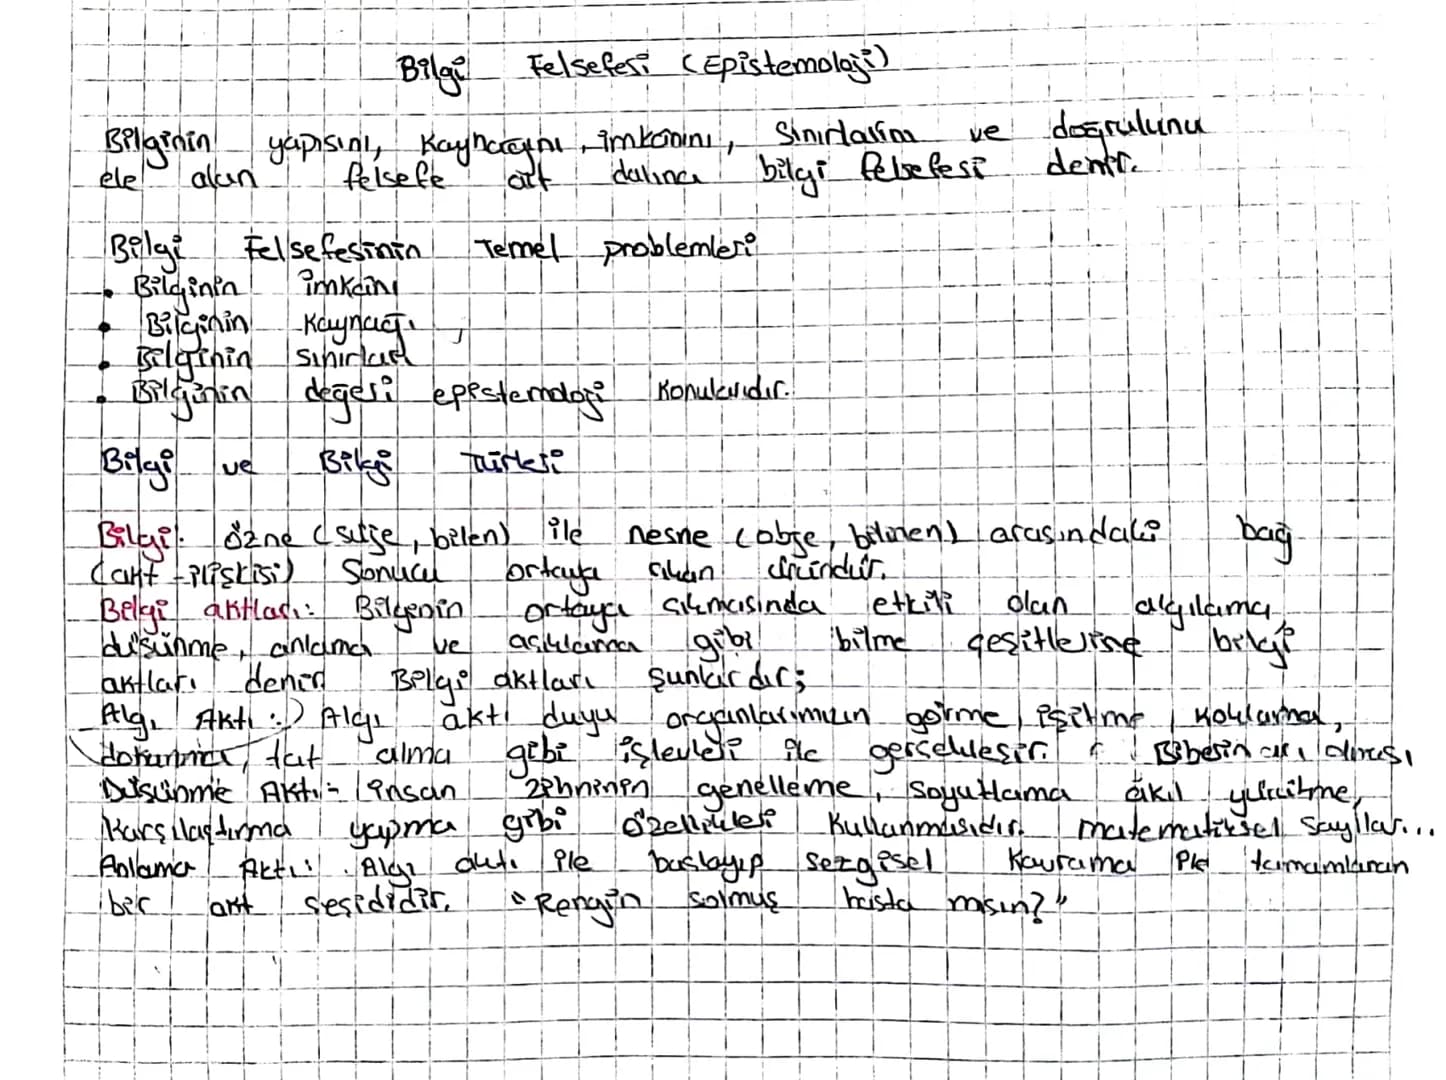 Bilgi Felsefesi (Epistemoloji)
Bilginin yapısını, Kaynağını, imkanını, Sınırlarını ve doğrulunu
ele alan felsefe alt dalına bilgi felsefesi denir.
Bilgi Felsefesinin Temel problemleri
• Bilginin imkanı
• Bilginin Kaynağı,
• Bilginin sınırları
• Bilginin değeri epistemoloji Konularıdır.
Bilgi ve Bilgi Türleri
Bilgi: Özne (süje, bilen) ile nesne (obje, bilinen) arasındaki bağ
(akt ilişkisi) Sonucu ortaya çıkan üründür.
Bilgi aktları: Bilgenin ortaya çıkmasında etkili olan algılama,
düşünme, anlama ve açıklama gibi bilme çeşitlerine bilgi
aktları denir. Bilgi aktları şunlardır;
Algı Aktı: Algı aktı duyu organlarımızın görme, işitme, koklama,
dokunma, tat alma gibi işlevleri ile gerçekleşir. Biberin acı olması
Düşünme Aktı: insan zihninin genelleme, Soyutlama akıl yürütme,
Karşılaştırma yapma gibi özellikleri Kullanmasıdır. matematiksel Sayılar...
Anlama Aktı: Algı aktı ile başlayıp sezgisel Kavrama ile tamamlanan
bir akt çeşididir. "Rengin solmuş hasta mısın?"